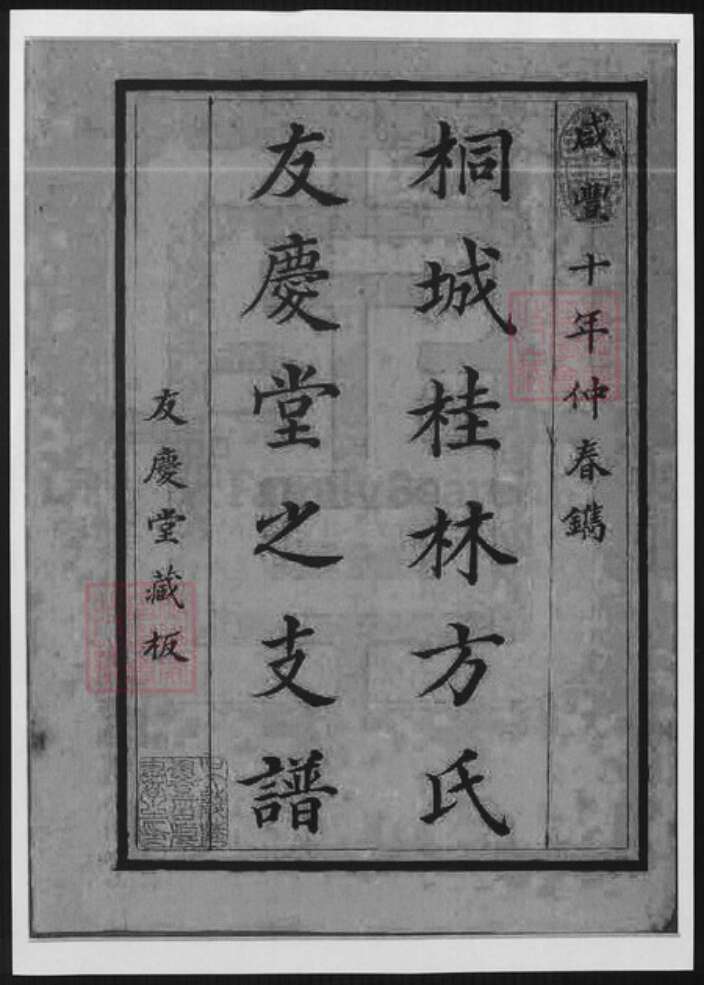 咸豐十年仲春鐫
桐城桂林方氏
友慶堂之支譜
友慶堂藏板
FamilySearch